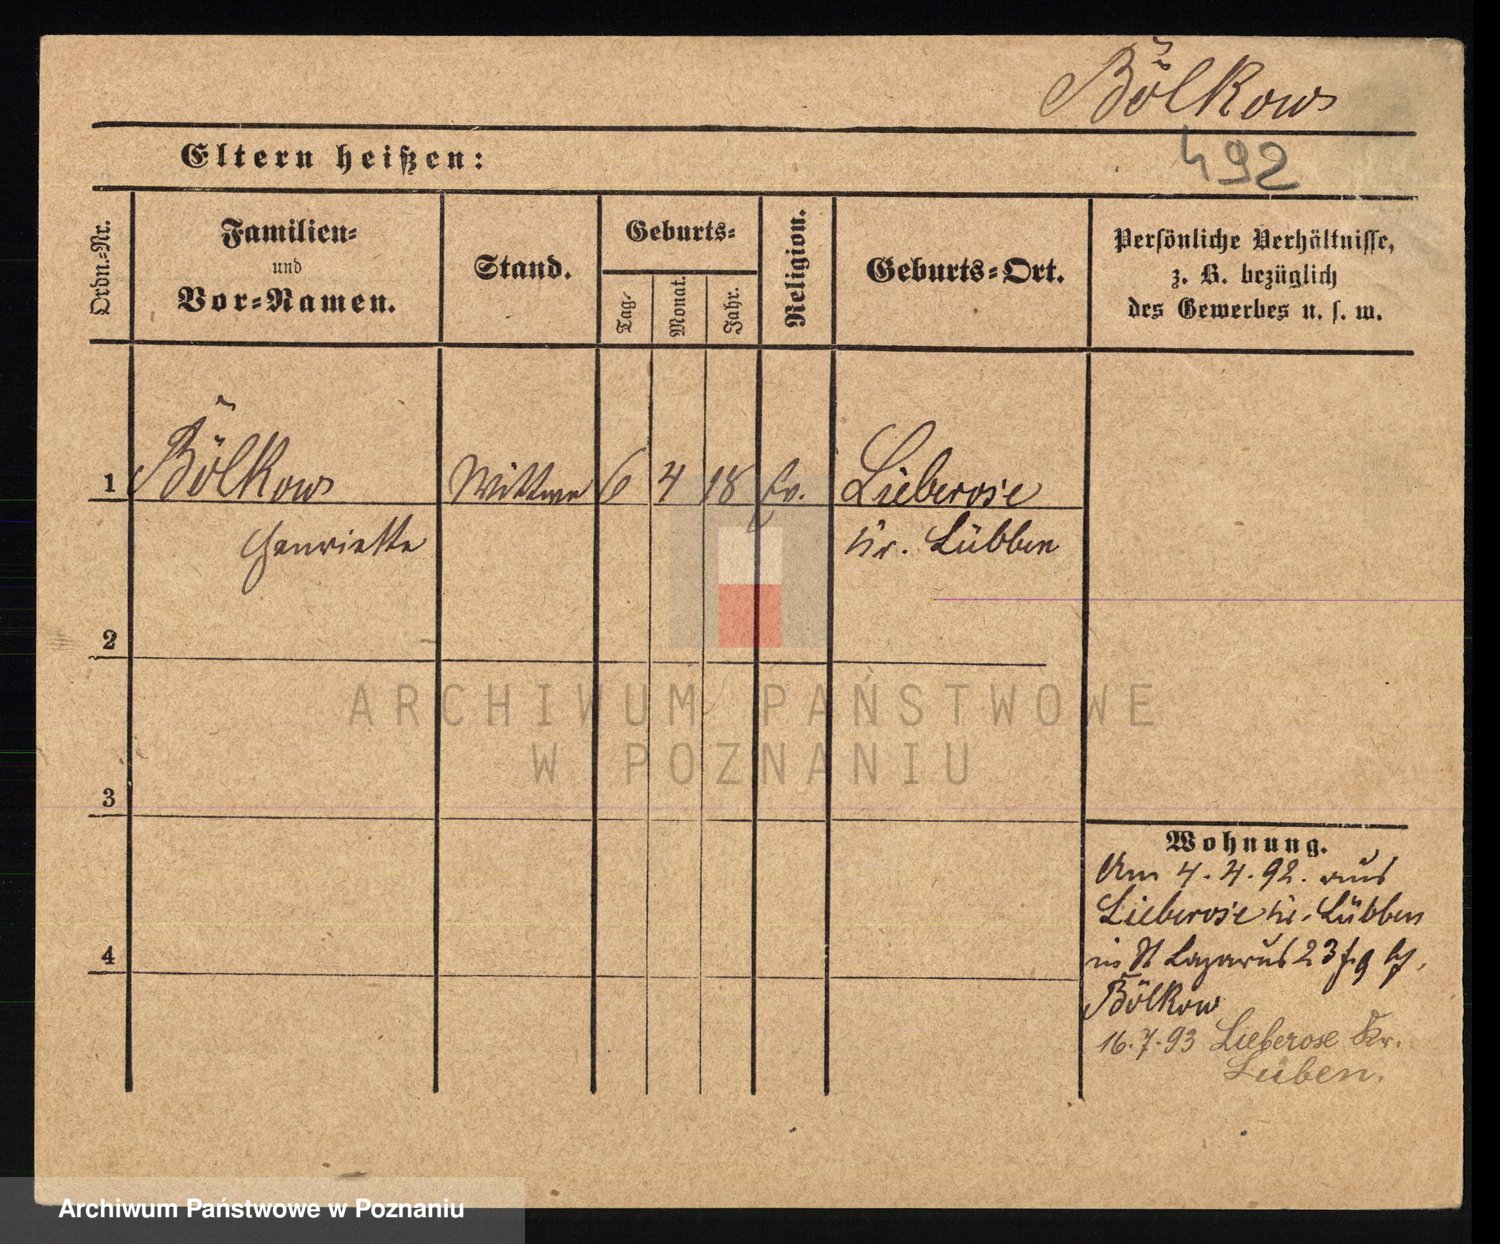 Bölkow
492
Eltern heißen:
Ordn.-Nr.
Familien-
und
Vor-Namen.
Stand.
Geburts-
Tag.
Monat.
Jahr.
Religion.
Geburts-Ort.
Persönliche Verhältnisse,
z. B. bezüglich
des Gewerbes u. s. w.
1 Bölkow Wittwe 6 4 18 Ev. Lieberose
Henriette Kr. Lübben
2
3
4
Wohnung.
Am 4.4.92. aus
Lieberose Kr. Lübben
in St Lazarus 23
Bölkow
16.7.93 Lieberose Kr.
Lüben.
ARCHIWUM PAŃSTWOWE
W POZNANIU
Archiwum Państwowe w Poznaniu